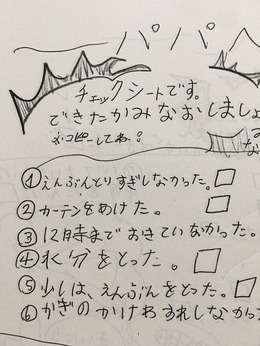 パパ
チェックシートです。
できたかみなおしましょ
※コピーしてね?
①えんぶんとりすぎしなかった。
②カーテンをあけた。
③12時までおきていなかった。
④水分をとった。
⑤少しは、えんぶんをとった。
⑥かぎのかけわすれしなかっ